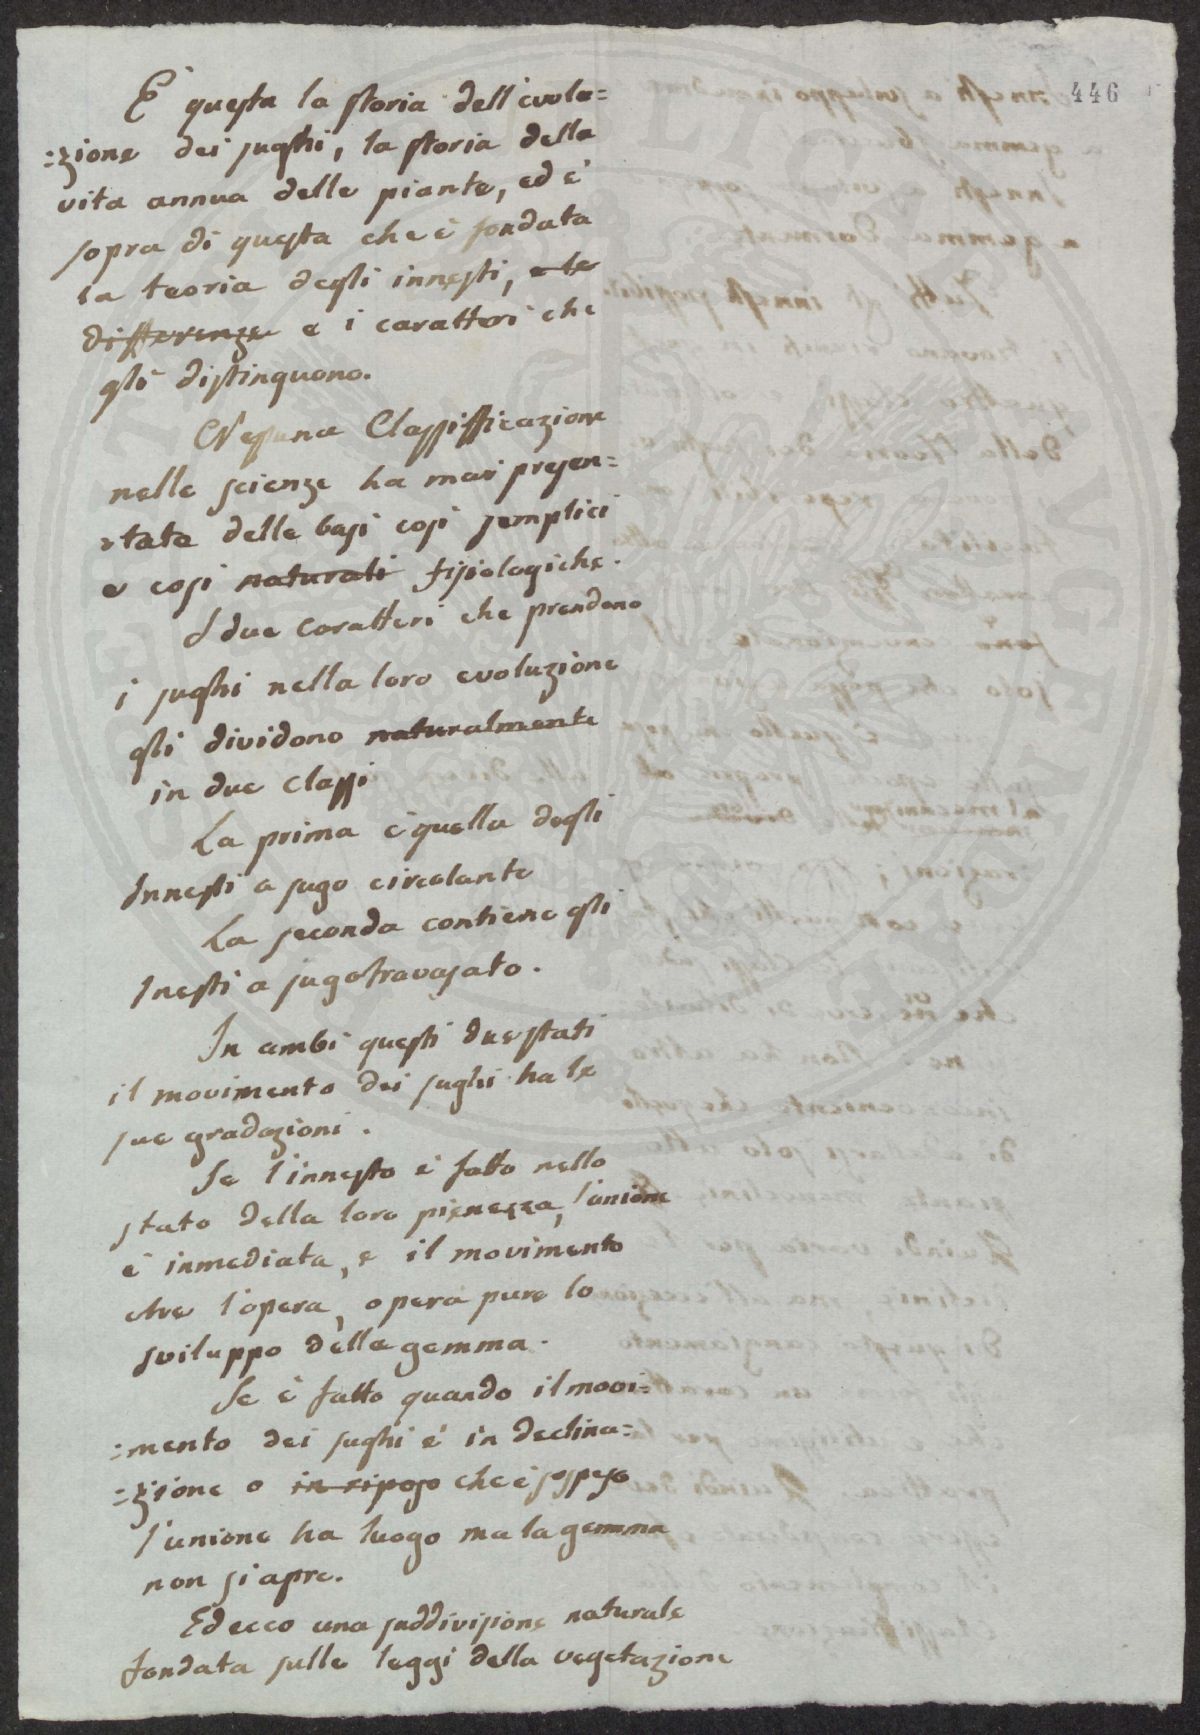 446
E' questa la storia dell'evolu=
=zione dei sughi, la storia della
vita annua delle piante, ed è
sopra di questa che è fondata
la teoria degli innesti, e le
differenze e i caratteri che
gli distinguono.
Nessuna Classifficazione
nelle scienze ha mai presen=
=tate delle basi così semplici
e così naturali fisiologiche.
I due caratteri che prendono
i sughi nella loro evoluzione
gli dividono naturalmente
in due classi
La prima è quella degli
Innesti a sugo circolante
La seconda contiene gli
Inesti a sugo travasato.
In ambi questi due stati
il movimento dei sughi ha le
sue gradazioni.
Se l'innesto è fatto nello
stato della loro pienezza, l'unione
è inmediata, e il movimento
che l'opera, opera pure lo
sviluppo della gemma.
Se è fatto quando il movi=
=mento dei sughi è in declina=
=zione o in riposo che è sospeso
l'unione ha luogo ma la gemma
non si apre.
Ed ecco una suddivisione naturale
fondata sulle leggi della vegetazione